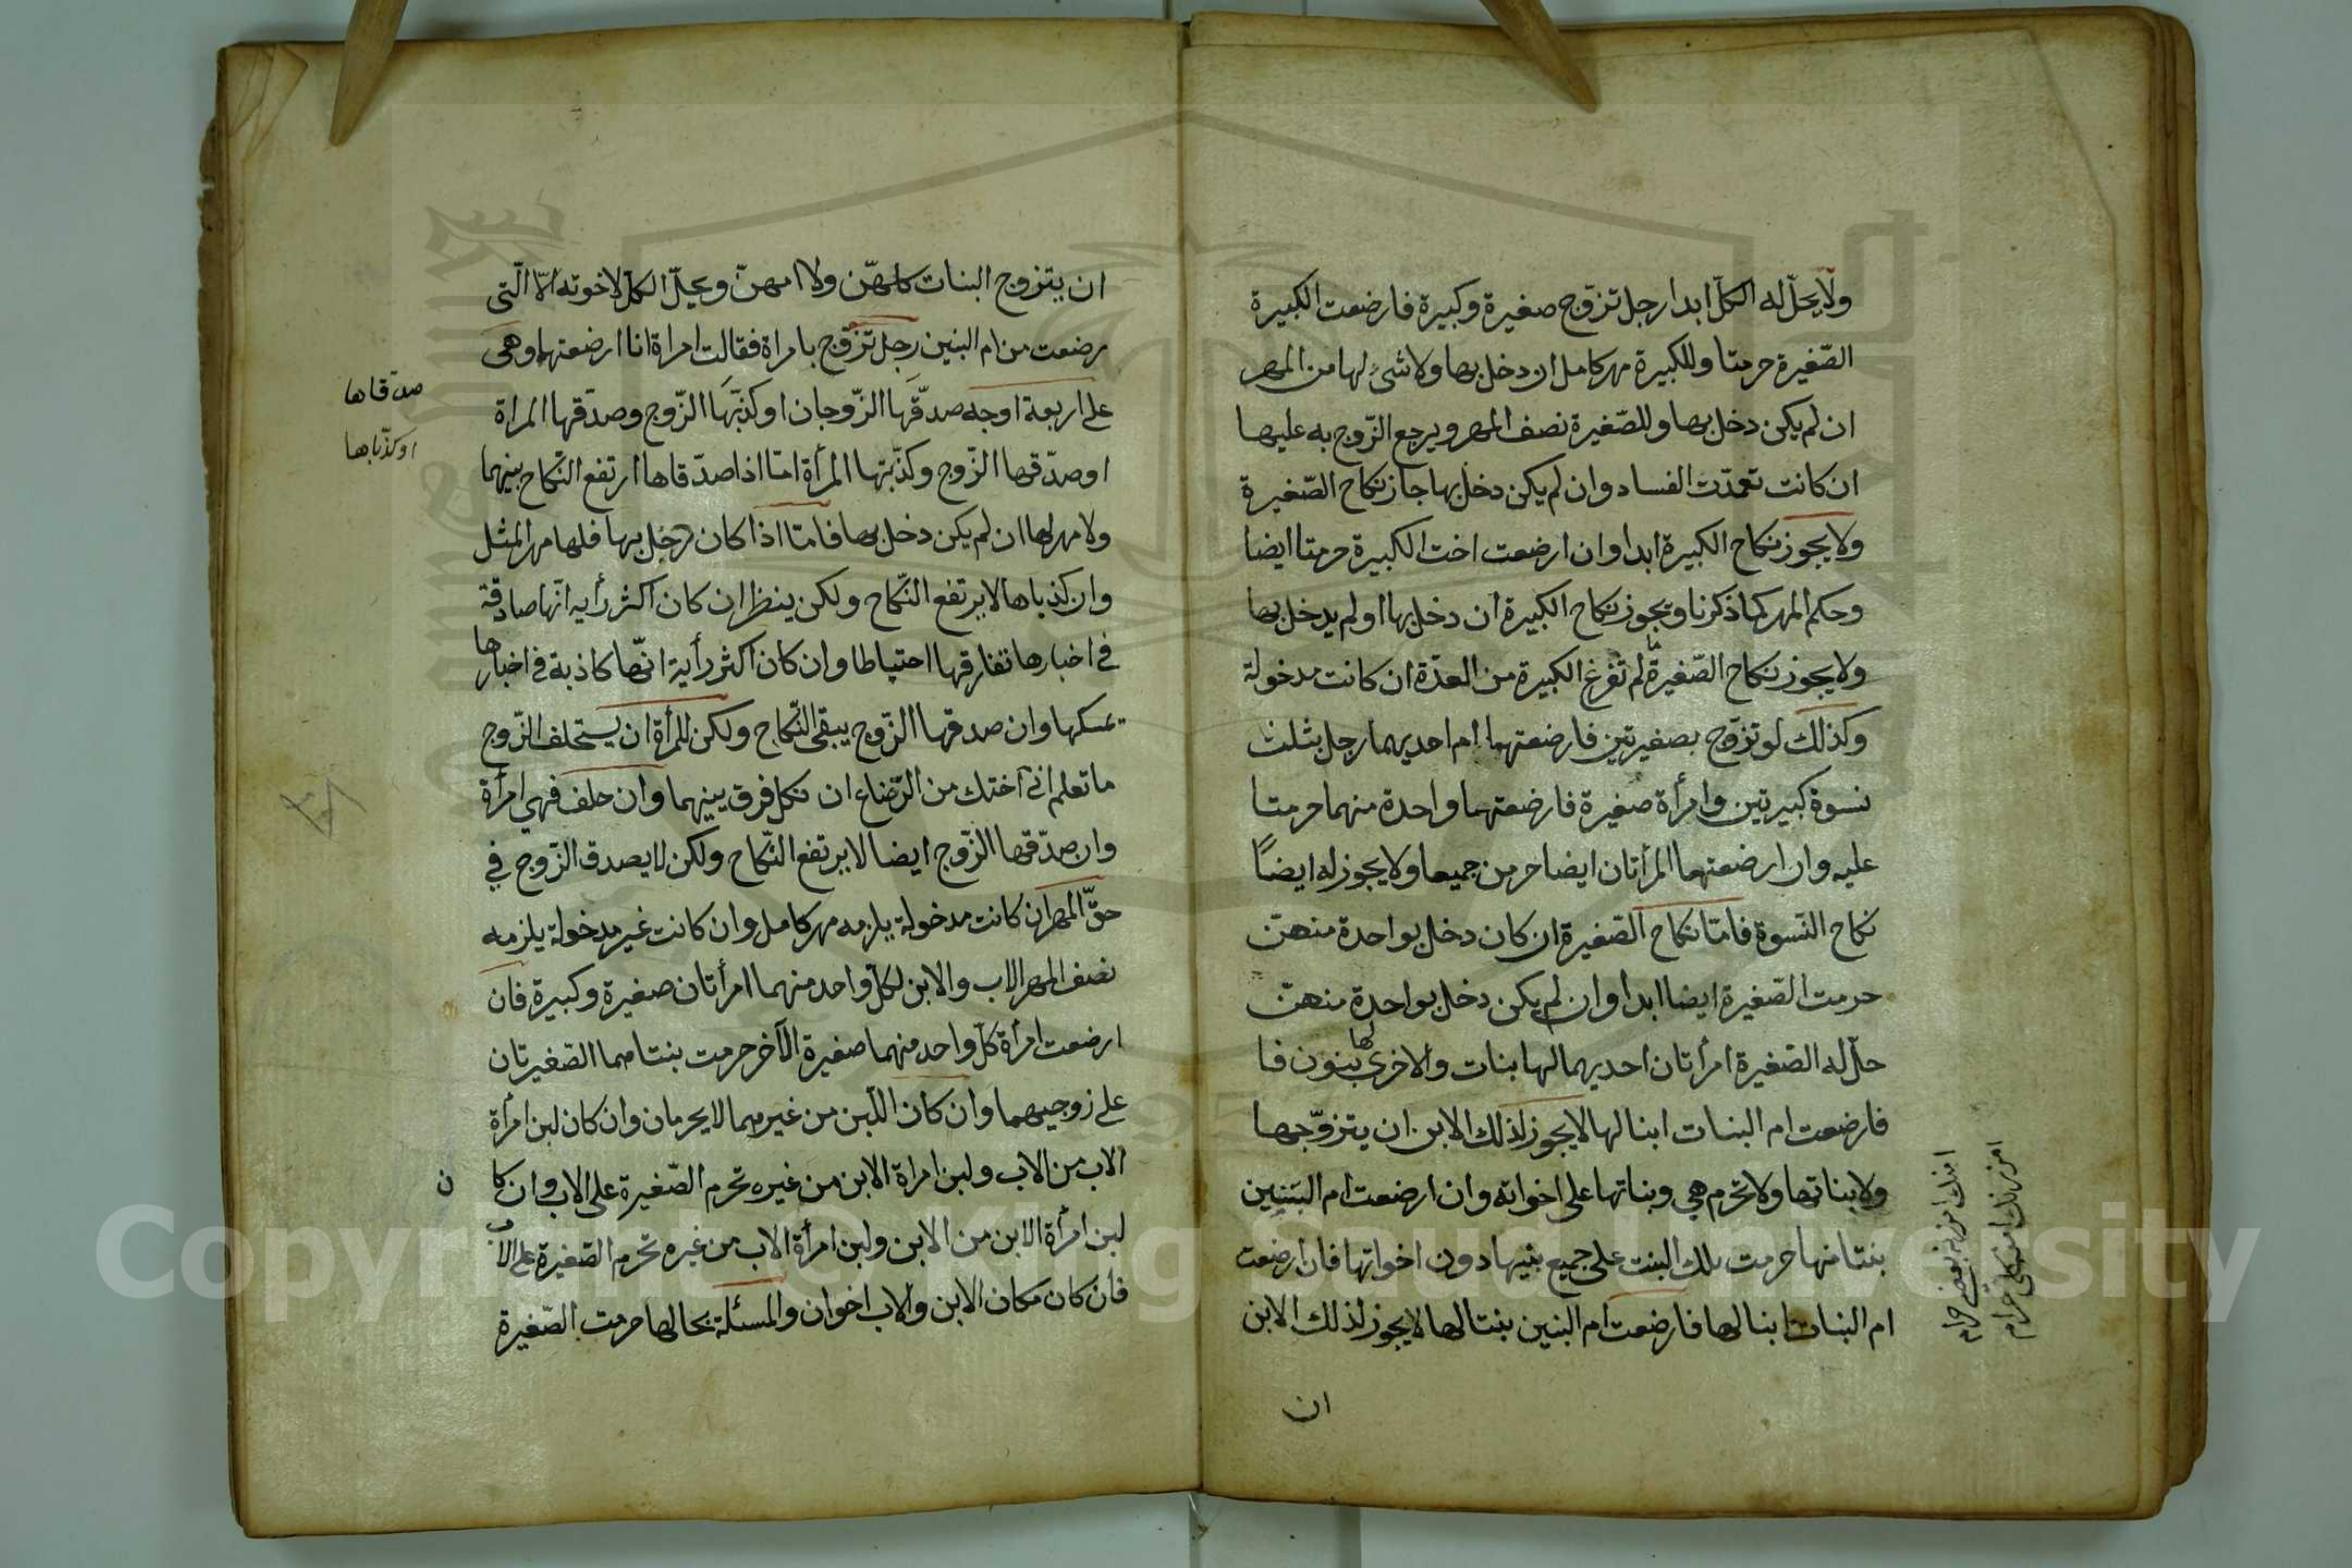 ولا يحلّ له الكلّ ابدا رجل تزوّج صغيرة وكبيرة فارضعت الكبيرة
الصّغيرة حرمتا وللكبيرة مهر كامل ان دخل بها ولا شئ لها من المهر
ان لم يكن دخل بها وللصّغيرة نصف المهر ويرجع الزّوج به عليها
ان كانت تعمّدت الفساد وان لم يكن دخل بها جاز نكاح الصّغيرة
ولا يجوز نكاح الكبيرة ابدا وان ارضعت اخت الكبيرة حرمتا ايضا
وحكم المهر كما ذكرنا ويجوز نكاح الكبيرة ان دخل بها او لم يدخل بها
ولا يجوز نكاح الصّغيرة ما لم تفرغ الكبيرة من العدّة ان كانت مدخولة
وكذلك لو تزوّج بصغيرتين فارضعتهما ام احديهما رجل بثلث
نسوة كبيرتين وامرأة صغيرة فارضعتهما واحدة منهما حرمتا
عليه وان ارضعتهما المرأتان ايضا حرمن جميعا ولا يجوز له ايضاً
نكاح النّسوة فامّا نكاح الصّغيرة ان كان دخل بواحدة منهنّ
حرمت الصّغيرة ايضا ابدا وان لم يكن دخل بواحدة منهنّ
حلّ له الصّغيرة امرأتان احديهما لها بنات والاخرى لها بنون فا
فارضعت ام البنات ابنا لها لا يجوز لذلك الابن ان يتزوّجها
ولا بناتها ولا تحرم هي وبناتها على اخواته وان ارضعت ام البنين
بنتا منها حرمت تلك البنت على جميع بنيها دون اخواتها فان ارضعت
ام البنات ابنا لها فارضعت ام البنين بنتا لها لا يجوز لذلك الابن
ان
ان يتزوج البنات كلهنّ ولا امهنّ ويحلّ الكلّ لاخوته الّا الّتى
رضعت من ام البنين رجل تزوّج بامراة فقالت امراة انا ارضعتهما وهى
على اربعة اوجه صدّقها الزّوجان او كذبها الزّوج وصدّقها المراة
صدقاها
او كذّباها
او صدّقها الزّوج وكذّبتها المرأة امّا اذا صدّقاها ارتفع النّكاح بينهما
ولا مهر لها ان لم يكن دخل بها فامّا اذا كان دخل بها فلها مهر المثل
وان كذباها لا يرتفع النّكاح ولكن ينظر ان كان اكثر رأيه انّها صادقة
فى اخبارها تفارقها احتياطا وان كان اكثر رأية انّها كاذبة فى اخبارها
يمسكها وان صدقها الزّوج يبقى النّكاح ولكن للمرأة ان يستحلف الزّوج
ما تعلم انى اختك من الرّضاع ان نكل فرق بينهما وان حلف فهي امرأة
وان صدّقها الزّوج ايضا لا يرتفع النّكاح ولكن لا يصدق الزّوج في
حقّ المهر ان كانت مدخولة يلزمه مهر كامل وان كانت غير مدخولة يلزمه
نصف المهر الاب والابن لكلّ واحد منهما امرأتان صغيرة وكبيرة فان
ارضعت امرأة كلّ واحد منهما صغيرة الآخر حرمت بنتاهما الصّغيرتان
على زوجيهما وان كان اللّبن من غيرهما لا يحرمان وان كان لبن امرأة
الاب من الاب ولبن امراة الابن من غيره تحرم الصّغيرة على الاب وان كا
ن
لبن امرأة الابن من الابن ولبن امرأة الاب من غيره تحرم الصّغيرة على الاب
فان كان مكان الابن والاب اخوان والمسئلة بحالها حرمت الصّغيرة
Copyright © King Saud University